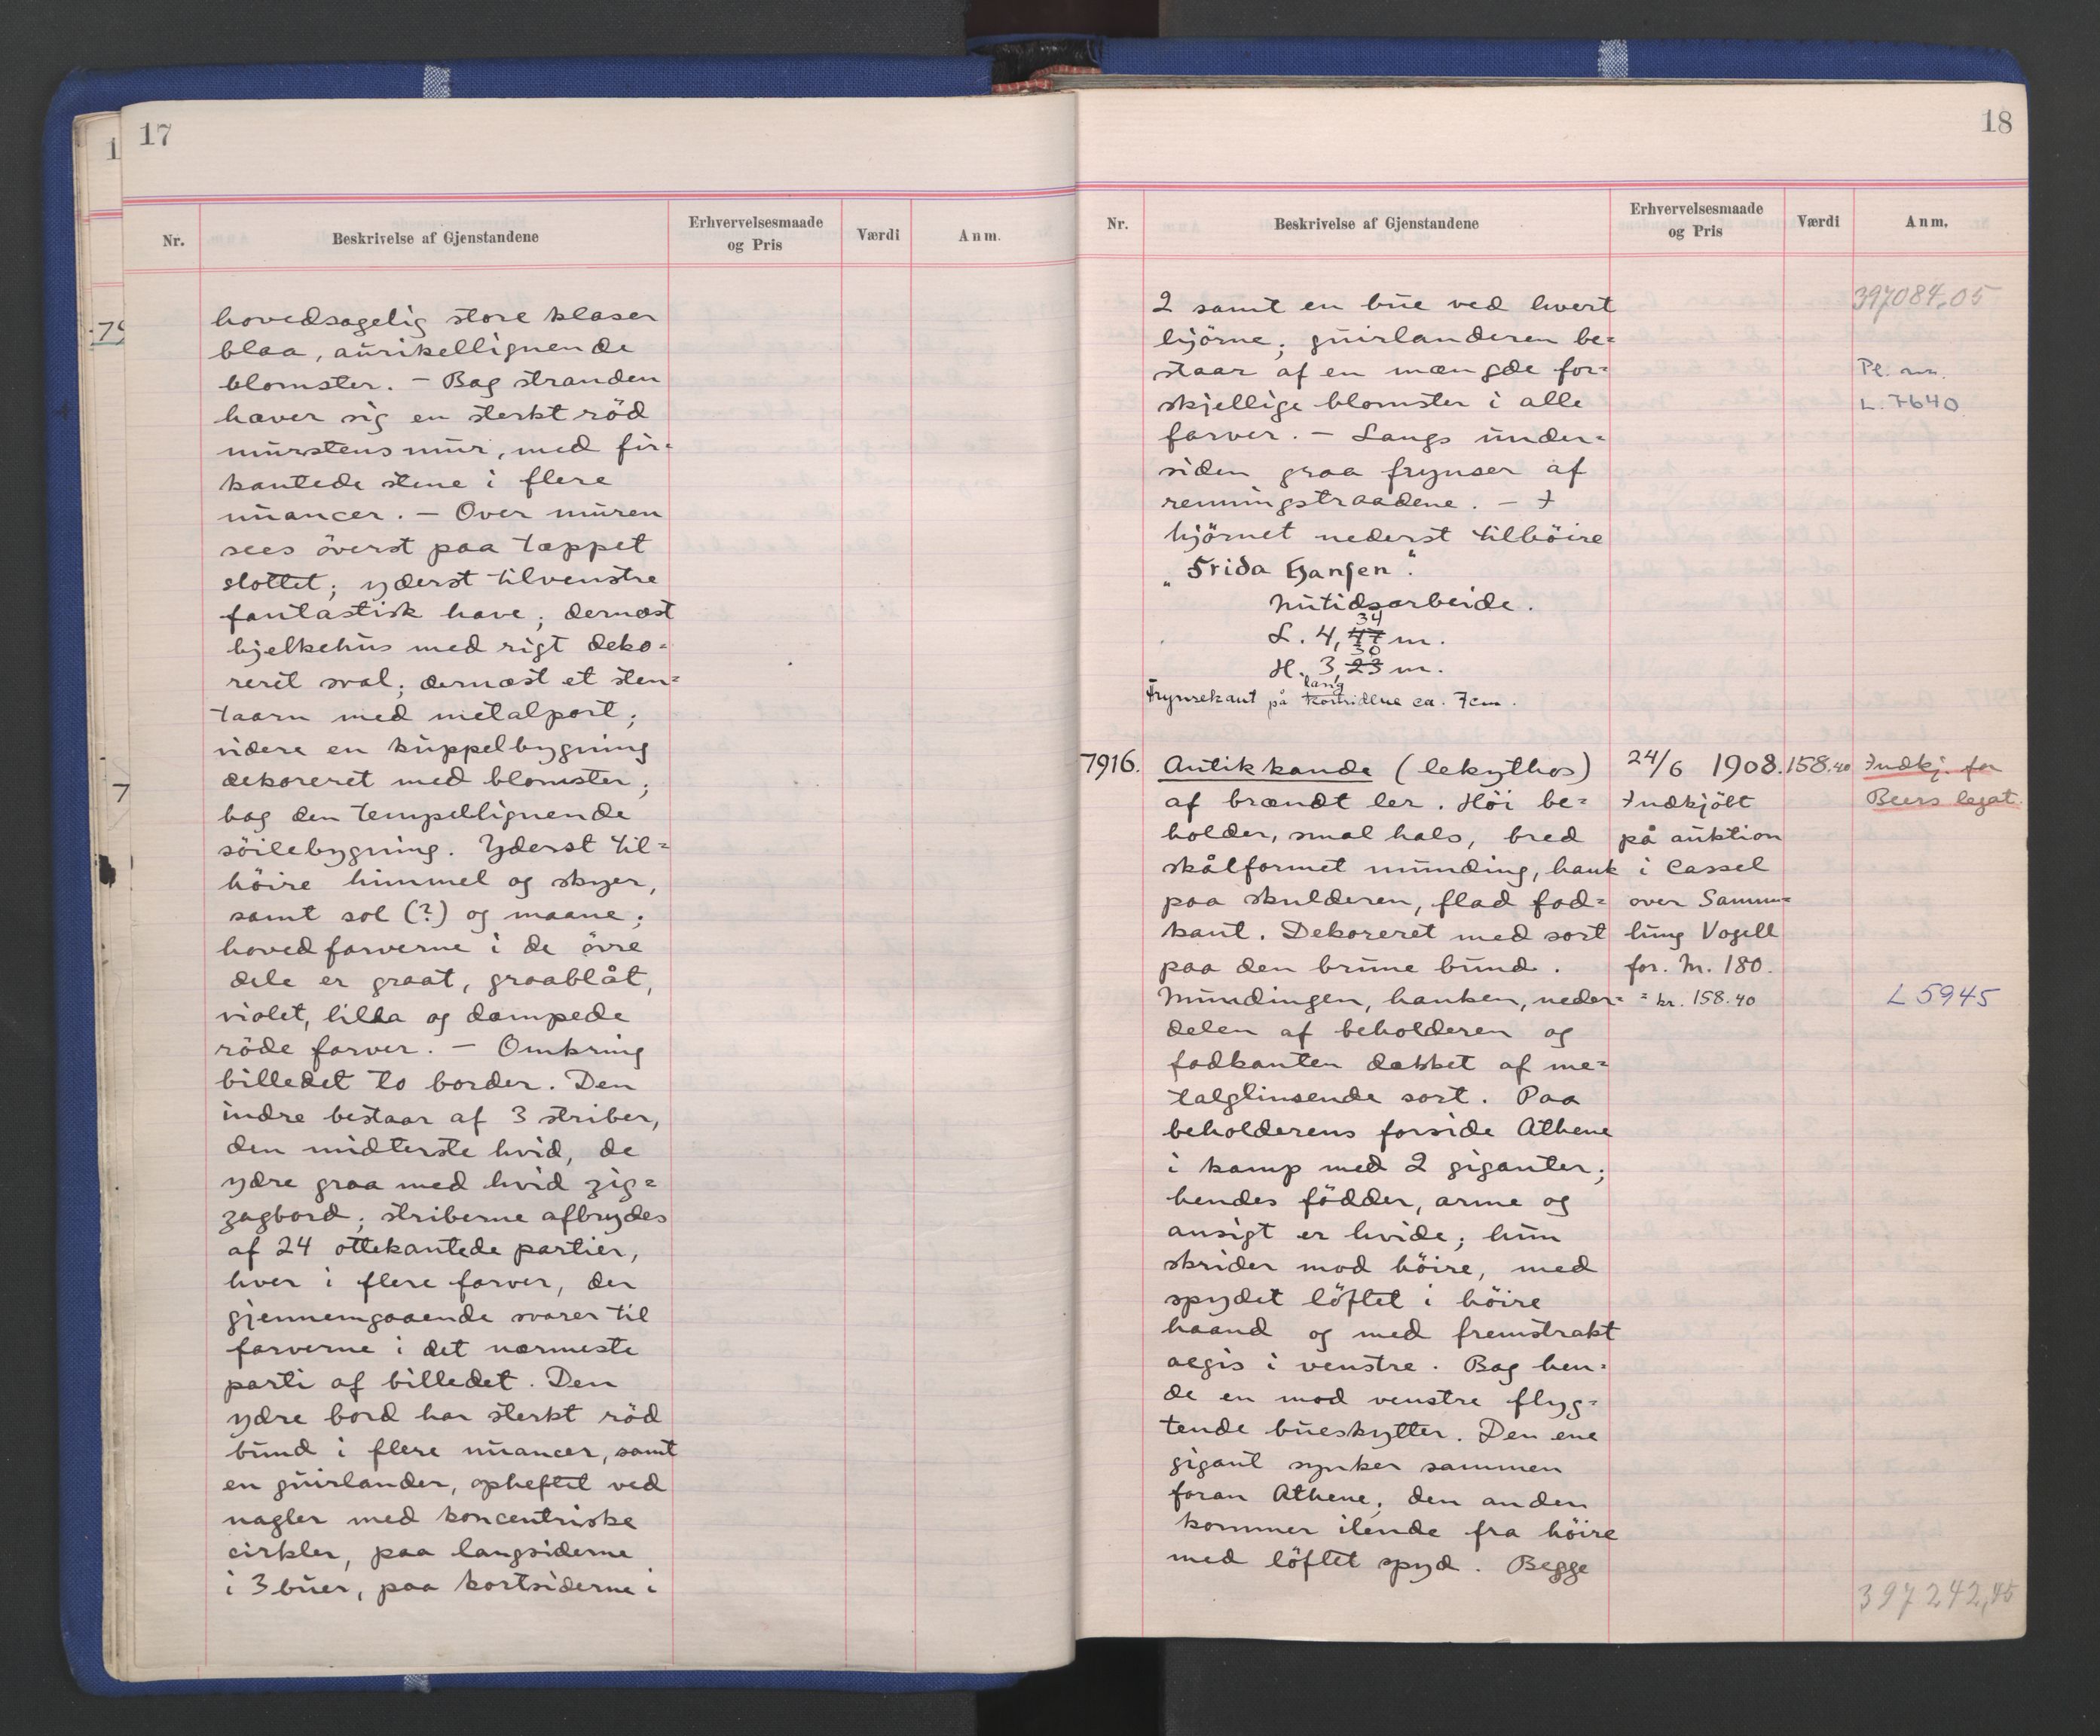 17
Nr.
Beskrivelse af Gjenstandene
Erhvervelsesmaade
og Pris
Værdi
Anm.
hovedsagelig store klaser
blaa, aurikellignende
blomster. — Bag stranden
hæver sig en sterkt röd
murstensmur, med fir=
kantede stene i flere
nuancer. — Over muren
sees överst paa tæppet
slottet; yderst tilvenstre
fantastisk have; dernæst
bjelkehus med rigt deko=
reret sval; dernæst et sten=
taarn med metalport;
videre en kuppelbygning
dekoreret med blomster;
bag den tempellignende
söilebygning. Yderst til=
höire himmel og skyer,
samt sol (?) og maane;
hovedfarverne i de övre
dele er graat, graablåt,
violet, lilla og dæmpede
röde farver. — Omkring
billedet to border. Den
indre bestaar af 3 striber,
den midterste hvid, de
ydre graa med hvid zig=
zagbord; striberne afbrydes
af 24 ottekantede partier,
hver i flere farver, der
gjennemgaaende svarer til
farverne i det nærmeste
parti af billedet. Den
ydre bord har sterkt röd
bund i flere nuancer, samt
en guirlander, opheftet ved
nagler med koncentriske
cirkler, paa langsiderne
i 3 buer, paa kortsiderne i
18
Nr.
Beskrivelse af Gjenstandene
Erhvervelsesmaade
og Pris
Værdi
Anm.
2 samt en bue ved hvert
hjörne; guirlanderen be=
staar af en mængde for=
skjellige blomster i alle
farver. — Langs under=
siden graa frynser af
renningstraadene. — I
hjörnet nederst tilhöire
„Frida Hansen".
Nutidsarbeide.
34
L. 4,47 m.
30
H. 3,23 m.
lang
Frynsekant på kortsidene ca. 7cm.
397084,05
Pl. nr.
L. 7640
7916.
Antik kande (lekythos)
af brændt ler. Höi be=
holder, smal hals, bred
skålformet munding, hank
paa skulderen, flad fod=
kant. Dekoreret med sort
paa den brune bund.
Mundingen, hanken, neder=
delen af beholderen og
fodkanten dækket af me=
talglinsende sort. Paa
beholderens forside Athene
i kamp med 2 giganter;
hendes födder, arme og
ansigt er hvide; hun
skrider mod höire, med
spydet löftet i höire
haand og med fremstrakt
aegis i venstre. Bag hen=
de en mod venstre flyg=
tende bueskytter. Den ene
gigant synker sammen
foran Athene, den anden
kommer ilende fra höire
med löftet spyd. Begge
24/6 1908.
Indkjöbt
på auktion
i Cassel
over Samm=
lung Vogell
for. M. 180.
= kr. 158.40
158.40
Indkj. for
Beers legat.
L 5945
397242,45